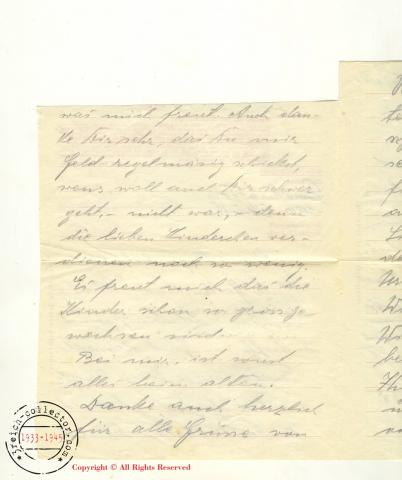 was mich freut. Auch dan-
ke Dir sehr, das Du mir
Geld regelmäsig schickst,
wens woll auch Dir schwer
geht, - nicht war, - denn
die lieben Kinderchen ver-
dienen noch so wenig.
Es freut mich das die
Kinder schon so gross ge
wachsen sind.
Bei mir ist sonst
alles beim alten.
Danke auch herzlich
für alle Grüsse von
3reich-collector.com
1933-1945
Copyright © All Rights Reserved